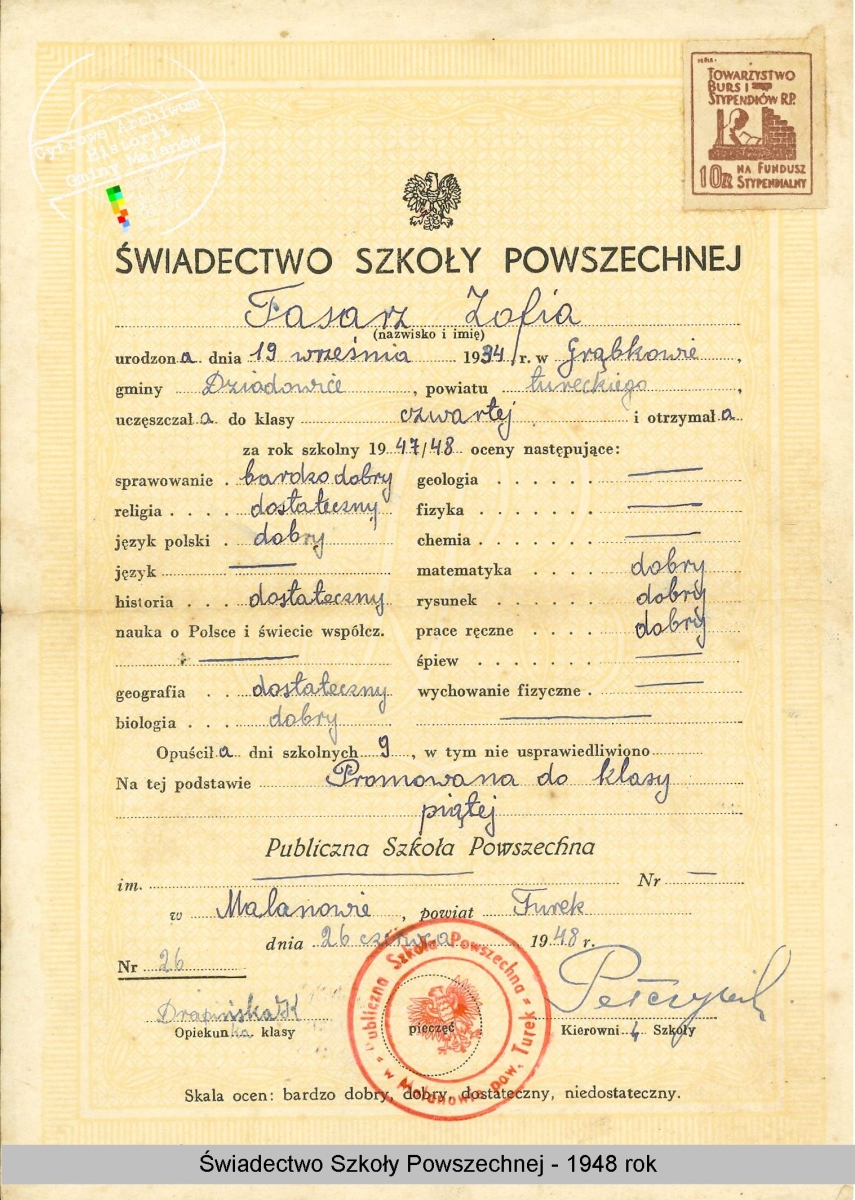 Cyfrowe Archiwum
Historii
Gminy Malanów
TOWARZYSTWO
BURS I
STYPENDIÓW R.P.
10 ZŁ NA FUNDUSZ
STYPENDIALNY
ŚWIADECTWO SZKOŁY POWSZECHNEJ
Fasarz Zofia
(nazwisko i imię)
urodzona dnia 19 września 1934 r. w Grąbkowie,
gminy Dziadowice, powiatu tureckiego,
uczęszczała do klasy czwartej i otrzymała
za rok szkolny 1947/48 oceny następujące:
sprawowanie . bardzo dobry
religia . . . . dostateczny
język polski . dobry
język —
historia . . . dostateczny
nauka o Polsce i świecie współcz.
—
geografia . . dostateczny
biologia . . . dobry
geologia . . . . . . —
fizyka . . . . . . . —
chemia . . . . . . . —
matematyka . . . . dobry
rysunek . . . . . . dobry
prace ręczne . . . . dobry
śpiew . . . . . . . —
wychowanie fizyczne . —
—
Opuściła dni szkolnych 9, w tym nie usprawiedliwiono
Na tej podstawie Promowana do klasy
piątej
Publiczna Szkoła Powszechna
im. — Nr —
w Malanowie, powiat Turek
dnia 26 czerwca 1948 r.
Nr 26
Drapińska
Opiekunka klasy
pieczęć
Publiczna Szkoła Powszechna
w Malanowie pow. Turek
Kierownik Szkoły
Skala ocen: bardzo dobry, dobry, dostateczny, niedostateczny.
Świadectwo Szkoły Powszechnej - 1948 rok